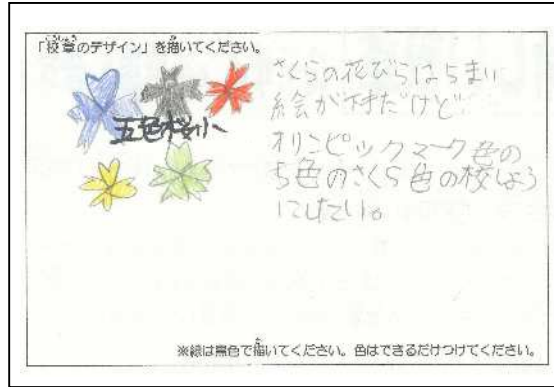 「校章のデザイン」を描いてください。
こうしょう
か
さくらの花びらは5まい
絵が下手だけど
オリンピックマーク色の
5色のさくら色の校しょう
にしたい。
五色桜小
※線は黒色で描いてください。色はできるだけつけてください。